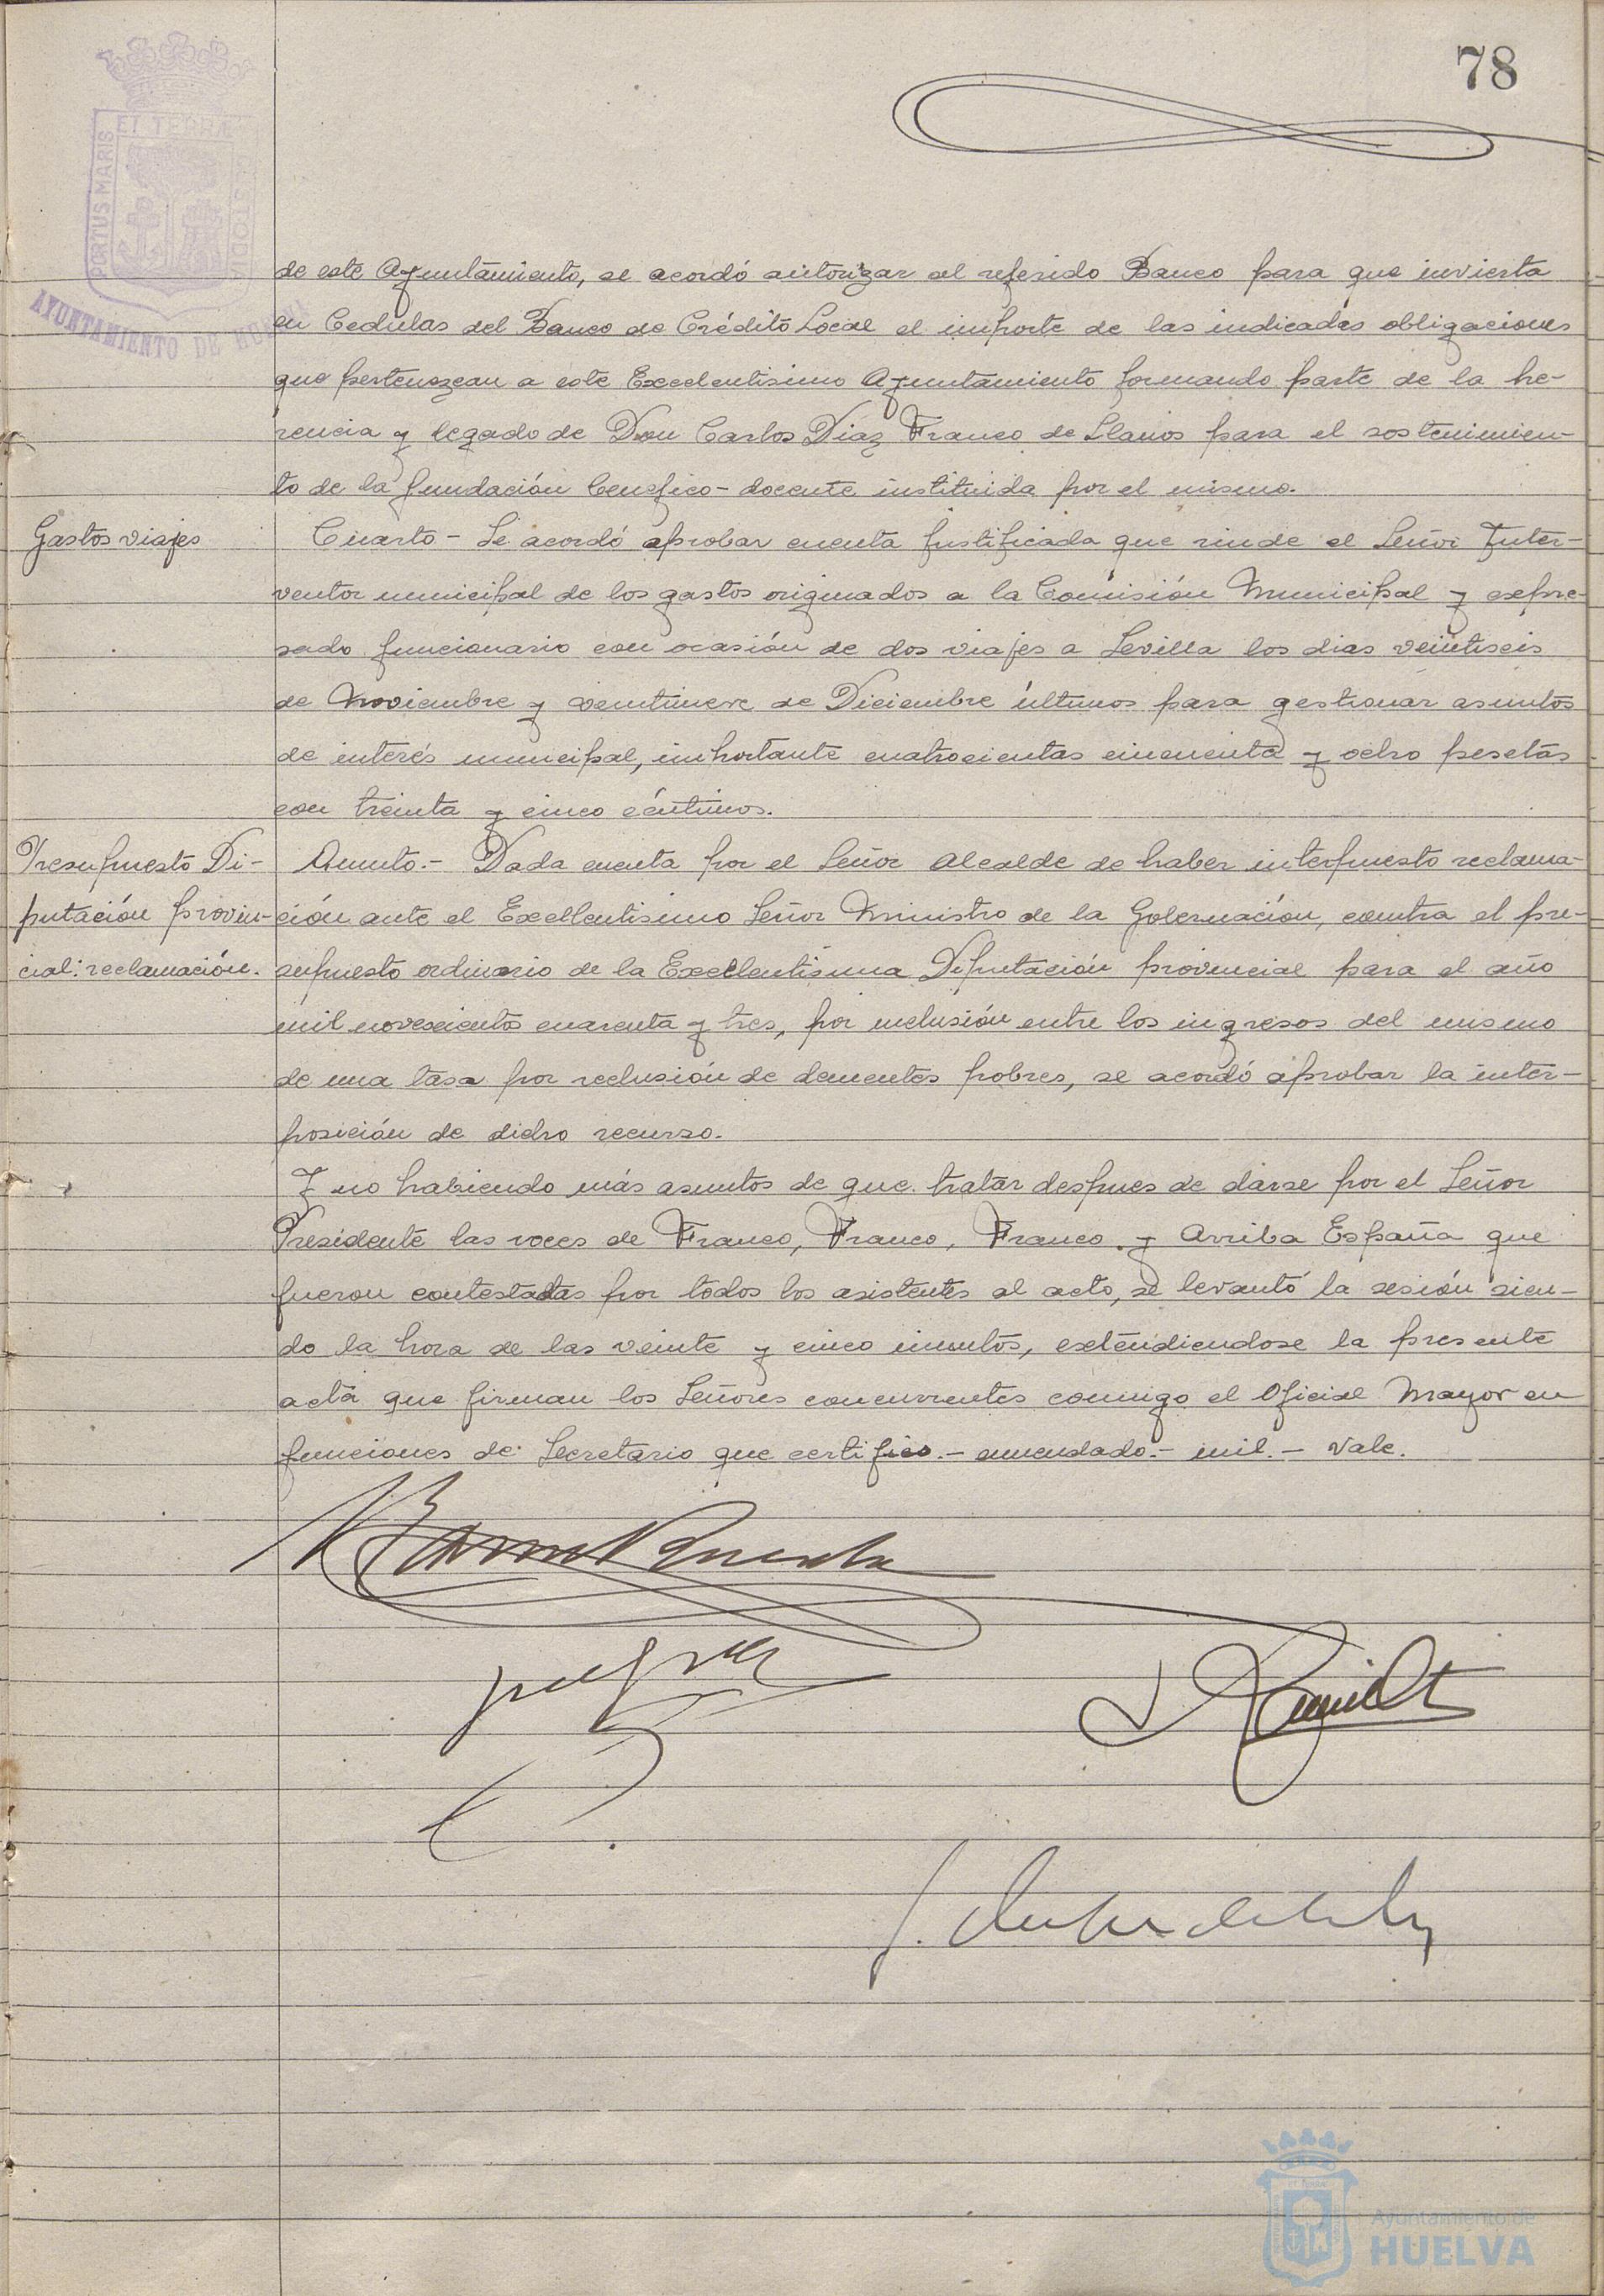 78
PORTUS MARIS ET TERRE CUSTODIA
AYUNTAMIENTO DE HUELVA
de este Ayuntamiento, se acordó autorizar al referido Banco para que invierta
en Cedulas del Banco de Crédito Local el importe de las indicadas obligaciones
que pertenezcan a este Excelentisimo Ayuntamiento formando parte de la he-
rencia y legado de Don Carlos Diaz Franco de Llanos para el sostenimien-
to de la fundación benefico-docente instituida por el mismo.
Gastos viajes
Cuarto - Se acordó aprobar cuenta justificada que rinde el Señor Inter-
ventor municipal de los gastos originados a la Comisión Municipal y expre-
sado funcionario con ocasión de dos viajes a Sevilla los dias veintiseis
de Noviembre y veintinueve de Diciembre últimos para gestionar asuntos
de interés municipal, importante cuatrocientas cincuenta y ocho pesetas
con treinta y cinco céntimos.
Presupuesto Di-
putación provin-
cial: reclamación.
Quinto.- Dada cuenta por el Señor Alcalde de haber interpuesto reclama-
ción ante el Excellentisimo Señor Ministro de la Gobernación, contra el pre-
supuesto ordinario de la Excellentisima Diputación provincial para el año
mil novescientos cuarenta y tres, por inclusión entre los ingresos del mismo
de una tasa por reclusión de dementes pobres, se acordó aprobar la inter-
posición de dicho recurso.
Y no habiendo más asuntos de que tratar despues de darse por el Señor
Presidente las voces de Franco, Franco, Franco y Arriba España que
fueron contestadas por todos los asistentes al acto, se levantó la sesión sien-
do la hora de las veinte y cinco minutos, extendiendose la presente
acta que firman los Señores concurrentes conmigo el Oficial Mayor en
funciones de Secretario que certifico.- enmendado.- mil.- Vale.
Ayuntamiento de
HUELVA